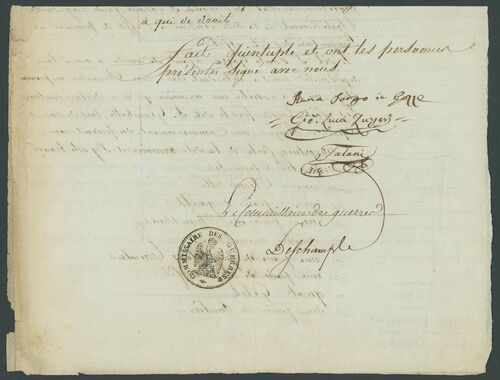 à qui de droit.
Fait quintuple et ont les personnes
présentes signé avec nous.
Anna Sorgo in Gozze
Gio. Luca Zuzzeri
Talani
Le Commissaire des guerres
Deschamps
COMMISSAIRE DES GUERRES